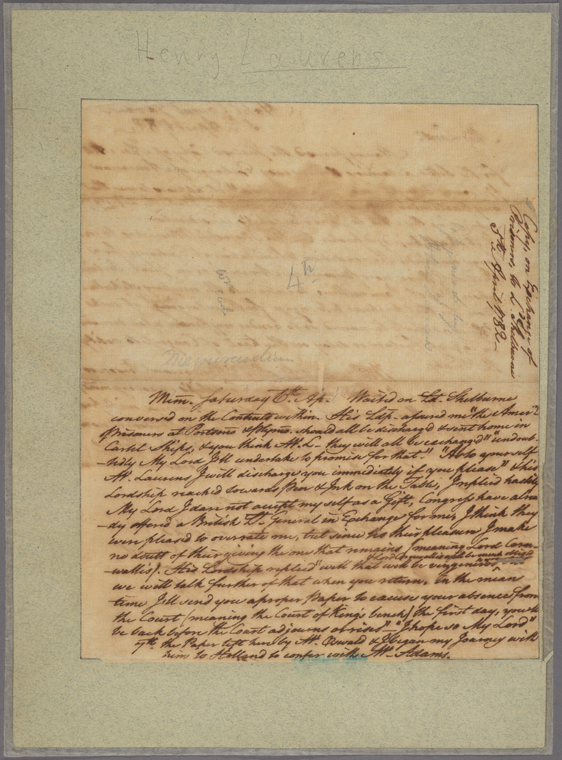 Henry Laurens
Copy, on Exchange of
Prisoners, to L Shelburne
5th April 1782
4th
Memorandum
Mem. Saturday 6th Ap. Waited on Ld. Shelburne
conversed on the Contents within. His Lsp. assured me "the Ameri-
Prisoners at Portsmo & Plymo. should all be discharged & sent home in
Cartel Ships, & you think Mr. L. they will all be exchanged" "undoub-
tedly My Lord I'll undertake to promise for that" "As to yourself
Mr. Laurens I will discharge you immediately if you please" & his
Lordship reached towards Pen & Ink on the Table, I replied hastily
My Lord I dare not accept myself as a Gift, Congress have alrea-
dy offered a British Lt. General in Exchange for me, I think they
were pleased to overrate me, but since tis their pleasure I make
no doubt of their giving the one that remains (meaning Lord Corn-
wallis). His Lordship replied "well that will be
we will talk further of that when you return, in the mean
time I'll send you a proper Paper to excuse your absence from
the Court (meaning the Court of Kings bench) the first day, you'll
be back before the Court adjourns or rises" "I hope so My Lord"
the Paper left here by Mr. Oswald & I began my Journey with
him to Holland to confer with Mr. Adams.